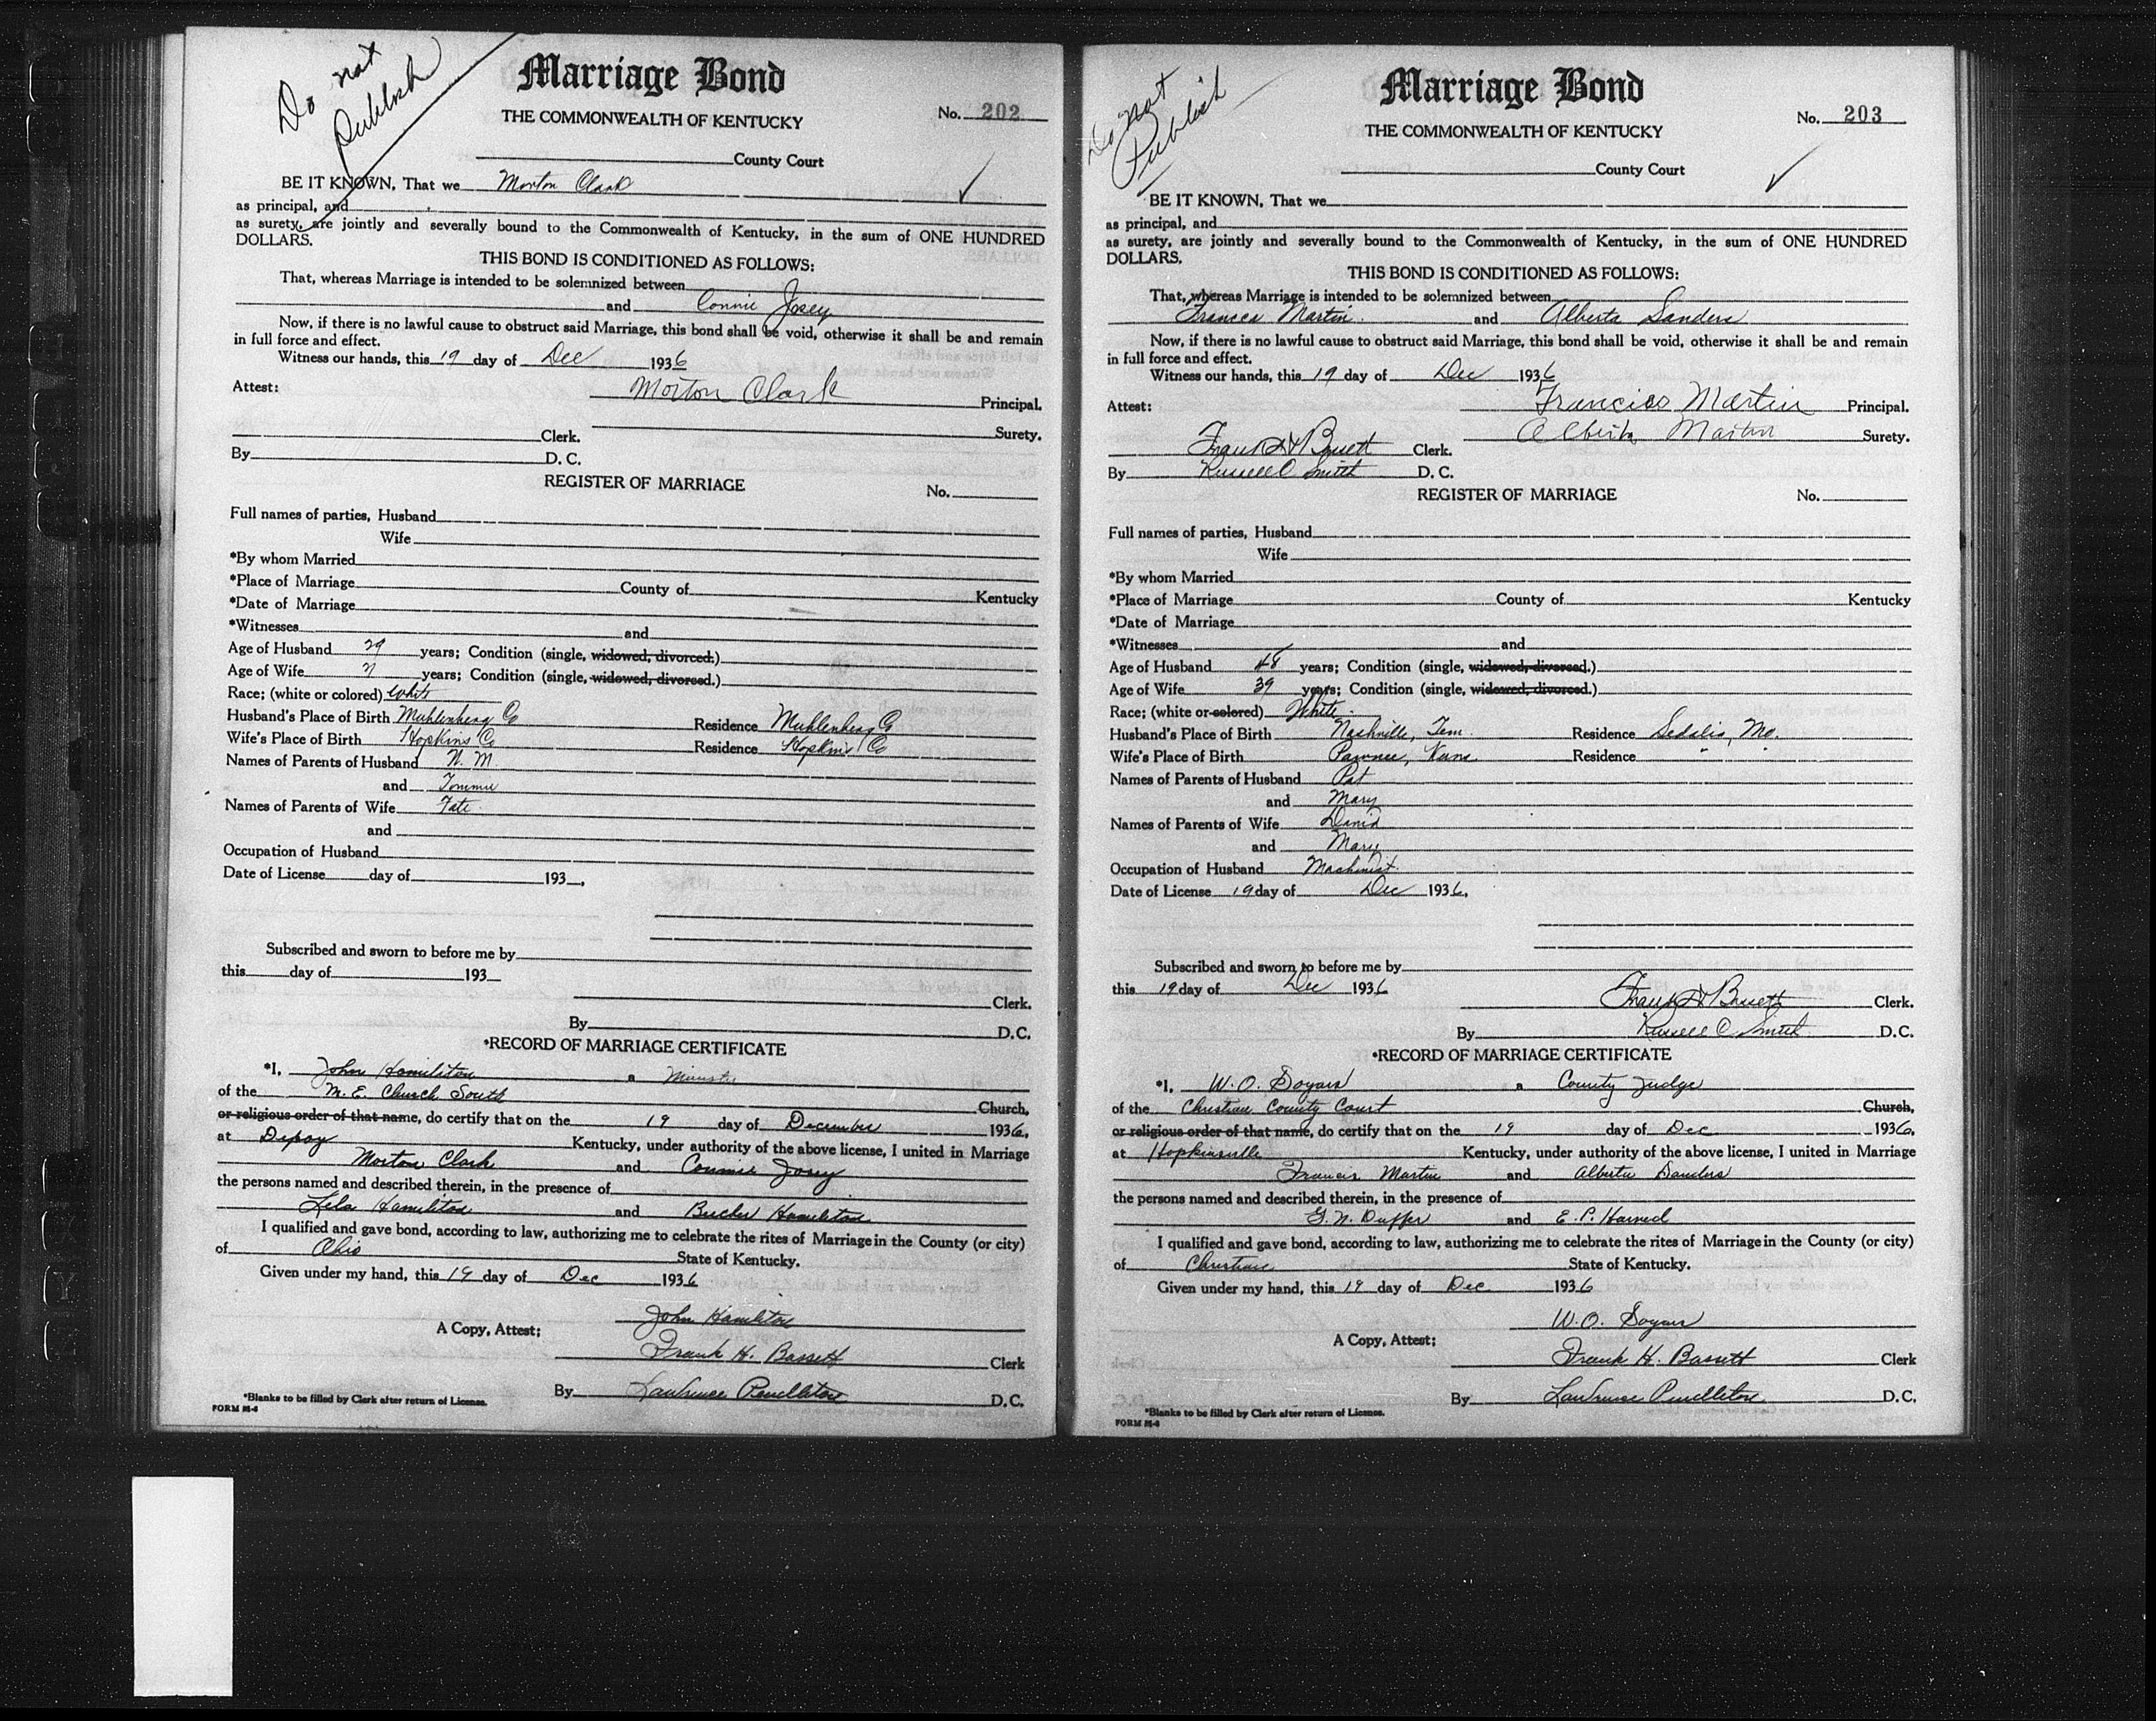 Do not
Publish
Marriage Bond
THE COMMONWEALTH OF KENTUCKY
No. 202
County Court
BE IT KNOWN, That we Morton Clark
as principal, and
as surety, are jointly and severally bound to the Commonwealth of Kentucky, in the sum of ONE HUNDRED
DOLLARS.
THIS BOND IS CONDITIONED AS FOLLOWS:
That, whereas Marriage is intended to be solemnized between
and Connie Josey
Now, if there is no lawful cause to obstruct said Marriage, this bond shall be void, otherwise it shall be and remain
in full force and effect.
Witness our hands, this 19 day of Dec 1936
Attest: Morton Clark Principal.
Surety.
Clerk.
By D. C.
REGISTER OF MARRIAGE No.
Full names of parties, Husband
Wife
*By whom Married
*Place of Marriage County of Kentucky
*Date of Marriage
*Witnesses and
Age of Husband 29 years; Condition (single, widowed, divorced.)
Age of Wife 21 years; Condition (single, widowed, divorced.)
Race; (white or colored) White
Husband's Place of Birth Muhlenberg Co Residence Muhlenberg Co
Wife's Place of Birth Hopkins Co Residence Hopkins Co
Names of Parents of Husband N. M
and Tommie
Names of Parents of Wife Tate
and
Occupation of Husband
Date of License day of 193 .
Subscribed and sworn to before me by
this day of 193
Clerk.
By D.C.
*RECORD OF MARRIAGE CERTIFICATE
*I, John Hamilton a Minister
of the M. E. Church South Church,
or religious order of that name, do certify that on the 19 day of December 1936,
at Depoy Kentucky, under authority of the above license, I united in Marriage
Morton Clark and Connie Josey
the persons named and described therein, in the presence of
Lela Hamilton and Hamilton
I qualified and gave bond, according to law, authorizing me to celebrate the rites of Marriage in the County (or city)
of Ohio State of Kentucky.
Given under my hand, this 19 day of Dec 1936
John Hamilton
A Copy, Attest;
Frank H. Bassett Clerk
By Lawrence Pendleton D.C.
*Blanks to be filled by Clerk after return of License.
FORM M-4
Do not
Publish
Marriage Bond
THE COMMONWEALTH OF KENTUCKY
No. 203
County Court
BE IT KNOWN, That we
as principal, and
as surety, are jointly and severally bound to the Commonwealth of Kentucky, in the sum of ONE HUNDRED
DOLLARS.
THIS BOND IS CONDITIONED AS FOLLOWS:
That, whereas Marriage is intended to be solemnized between
Frances Martin and Alberta Sanders
Now, if there is no lawful cause to obstruct said Marriage, this bond shall be void, otherwise it shall be and remain
in full force and effect.
Witness our hands, this 19 day of Dec 1936
Attest: Francies Martin Principal.
Alberta Martin Surety.
Frank H Bassett Clerk.
By Russell C Smith D. C.
REGISTER OF MARRIAGE No.
Full names of parties, Husband
Wife
*By whom Married
*Place of Marriage County of Kentucky
*Date of Marriage
*Witnesses and
Age of Husband 48 years; Condition (single, widowed, divorced.)
Age of Wife 39 years; Condition (single, widowed, divorced.)
Race; (white or colored) White
Husband's Place of Birth Nashville, Tenn. Residence Sedalia, Mo.
Wife's Place of Birth Pawnee, Kans Residence " "
Names of Parents of Husband Pat
and Mary
Names of Parents of Wife David
and Mary
Occupation of Husband Machinist
Date of License 19 day of Dec 1936.
Subscribed and sworn to before me by
this 19 day of Dec 1936
Frank H Bassett Clerk.
By Russell C Smith D.C.
*RECORD OF MARRIAGE CERTIFICATE
*I, W. O. Soyars a County Judge
of the Christian County Court Church,
or religious order of that name, do certify that on the 19 day of Dec 1936,
at Hopkinsville Kentucky, under authority of the above license, I united in Marriage
Francis Martin and Alberta Sanders
the persons named and described therein, in the presence of
G. N. Duffer and E. P. Harned
I qualified and gave bond, according to law, authorizing me to celebrate the rites of Marriage in the County (or city)
of Christian State of Kentucky.
Given under my hand, this 19 day of Dec. 1936
W. O. Soyars
A Copy, Attest;
Frank H. Bassett Clerk
By Lawrence Pendleton D.C.
*Blanks to be filled by Clerk after return of License.
FORM M-4